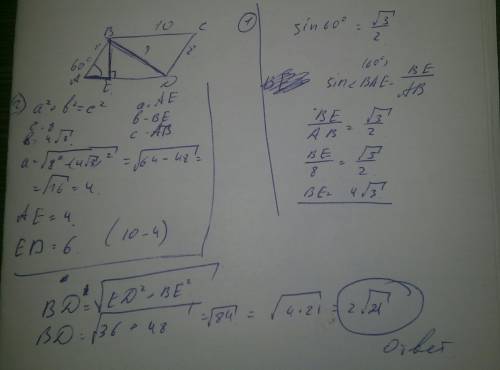 B 10 C
60° 8 ? 8
A E D
1)
sin 60° = √3/2
(60°)
sin<BAE = BE/AB
BE/AB = √3/2
BE/8 = √3/2
BE = 4√3
2)
a² + b² = c²
a - AE
b - BE
c - AB
c = 8
b = 4√3
a = √(8² - (4√3)²) = √(64 - 48) =
= √16 = 4.
AE = 4.
ED = 6 (10-4)
BD = √(ED² + BE²)
BD = √(36 + 48) = √84 = √(4·21) = 2√21
Ответ